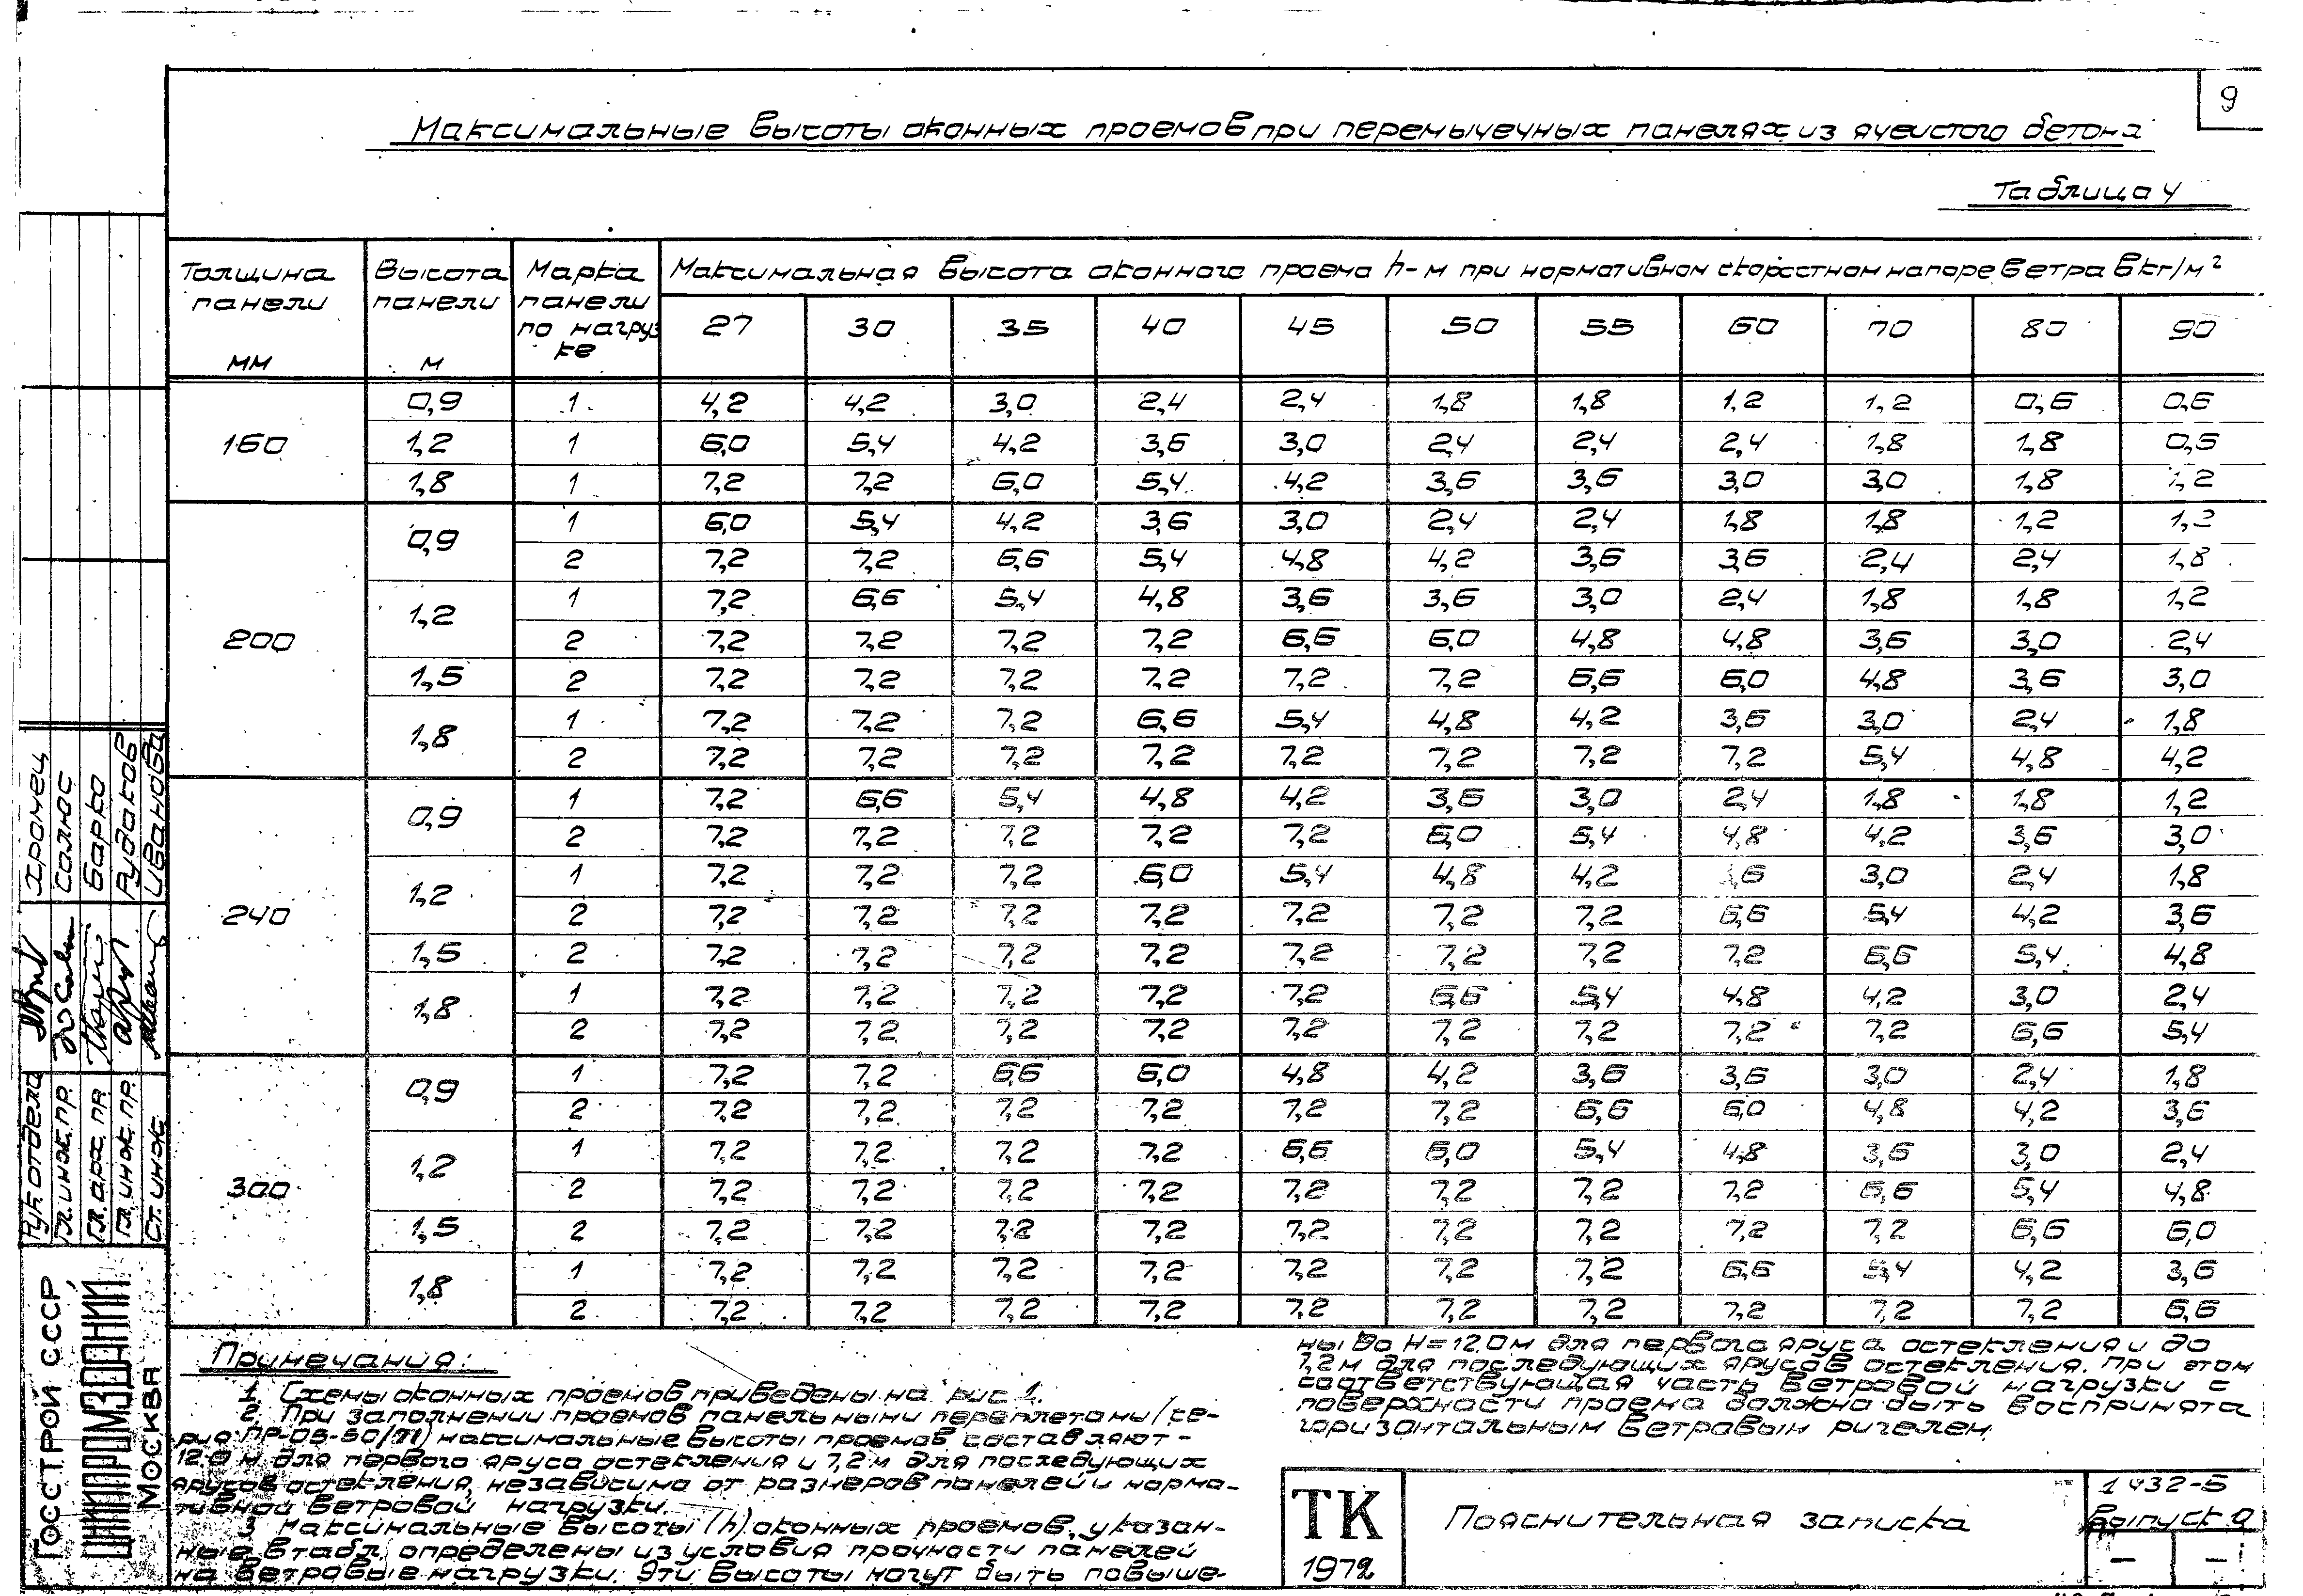 9
Максимальные высоты оконных проемов при перемычечных панелях из ячеистого бетона
Таблица 4
Толщина панели мм | Высота панели м | Марка панели по нагрузке | Максимальная высота оконного проема h-м при нормативном скоростном напоре ветра в кг/м²
27 30 35 40 45 50 55 60 70 80 90
160 0,9 1 4,2 4,2 3,0 2,4 2,4 1,8 1,8 1,2 1,2 0,6 0,6
1,2 1 6,0 5,4 4,2 3,6 3,0 2,4 2,4 2,4 1,8 1,8 0,6
1,8 1 7,2 7,2 6,0 5,4 4,2 3,6 3,6 3,0 3,0 1,8 1,2
200 0,9 1 6,0 5,4 4,2 3,6 3,0 2,4 2,4 1,8 1,8 1,2 1,2
2 7,2 7,2 6,6 5,4 4,8 4,2 3,6 3,6 2,4 2,4 1,8
1,2 1 7,2 6,6 5,4 4,8 3,6 3,6 3,0 2,4 1,8 1,8 1,2
2 7,2 7,2 7,2 7,2 6,6 6,0 4,8 4,8 3,6 3,0 2,4
1,5 2 7,2 7,2 7,2 7,2 7,2 7,2 6,6 6,0 4,8 3,6 3,0
1,8 1 7,2 7,2 7,2 6,6 5,4 4,8 4,2 3,6 3,0 2,4 1,8
2 7,2 7,2 7,2 7,2 7,2 7,2 7,2 7,2 5,4 4,8 4,2
240 0,9 1 7,2 6,6 5,4 4,8 4,2 3,6 3,0 2,4 1,8 1,8 1,2
2 7,2 7,2 7,2 7,2 7,2 6,0 5,4 4,8 4,2 3,6 3,0
1,2 1 7,2 7,2 7,2 6,0 5,4 4,8 4,2 3,6 3,0 2,4 1,8
2 7,2 7,2 7,2 7,2 7,2 7,2 7,2 6,6 5,4 4,2 3,6
1,5 2 7,2 7,2 7,2 7,2 7,2 7,2 7,2 7,2 6,6 5,4 4,8
1,8 1 7,2 7,2 7,2 7,2 7,2 6,6 5,4 4,8 4,2 3,0 2,4
2 7,2 7,2 7,2 7,2 7,2 7,2 7,2 7,2 7,2 6,6 5,4
300 0,9 1 7,2 7,2 6,6 6,0 4,8 4,2 3,6 3,6 3,0 2,4 1,8
2 7,2 7,2 7,2 7,2 7,2 7,2 6,6 6,0 4,8 4,2 3,6
1,2 1 7,2 7,2 7,2 7,2 6,6 6,0 5,4 4,8 3,6 3,0 2,4
2 7,2 7,2 7,2 7,2 7,2 7,2 7,2 7,2 6,6 5,4 4,8
1,5 2 7,2 7,2 7,2 7,2 7,2 7,2 7,2 7,2 7,2 6,6 6,0
1,8 1 7,2 7,2 7,2 7,2 7,2 7,2 7,2 6,6 5,4 4,2 3,6
2 7,2 7,2 7,2 7,2 7,2 7,2 7,2 7,2 7,2 7,2 6,6
Примечания:
1. Схемы оконных проемов приведены на рис 1.
2. При заполнении проемов панельными переплетами (се-
рия ПР-05-50/71) максимальные высоты проемов составляют -
12.0 м для первого яруса остекления и 7,2 м для последующих
ярусов остекления, независимо от размеров панелей и норма-
тивной ветровой нагрузки.
3. Максимальные высоты (h) оконных проемов, указан-
ные в табл. определены из условия прочности панелей
на ветровые нагрузки. Эти высоты могут быть повыше-
ны до H=12.0м для первого яруса остекления и до
7,2м для последующих ярусов остекления. При этом
соответствующая часть ветровой нагрузки с
поверхности проема должна быть воспринята
горизонтальным ветровым ригелем.
Рук отдела Хромец
Гл. инж. пр. Солюс
Гл. арх. пр. Барко
Гл. инж. пр. Рудаков
Ст. инж. Иванова
Госстрой СССР
ЦНИИПРОМЗДАНИЙ
МОСКВА
ТК
1972
Пояснительная записка
1432-5
Выпуск 0
- -